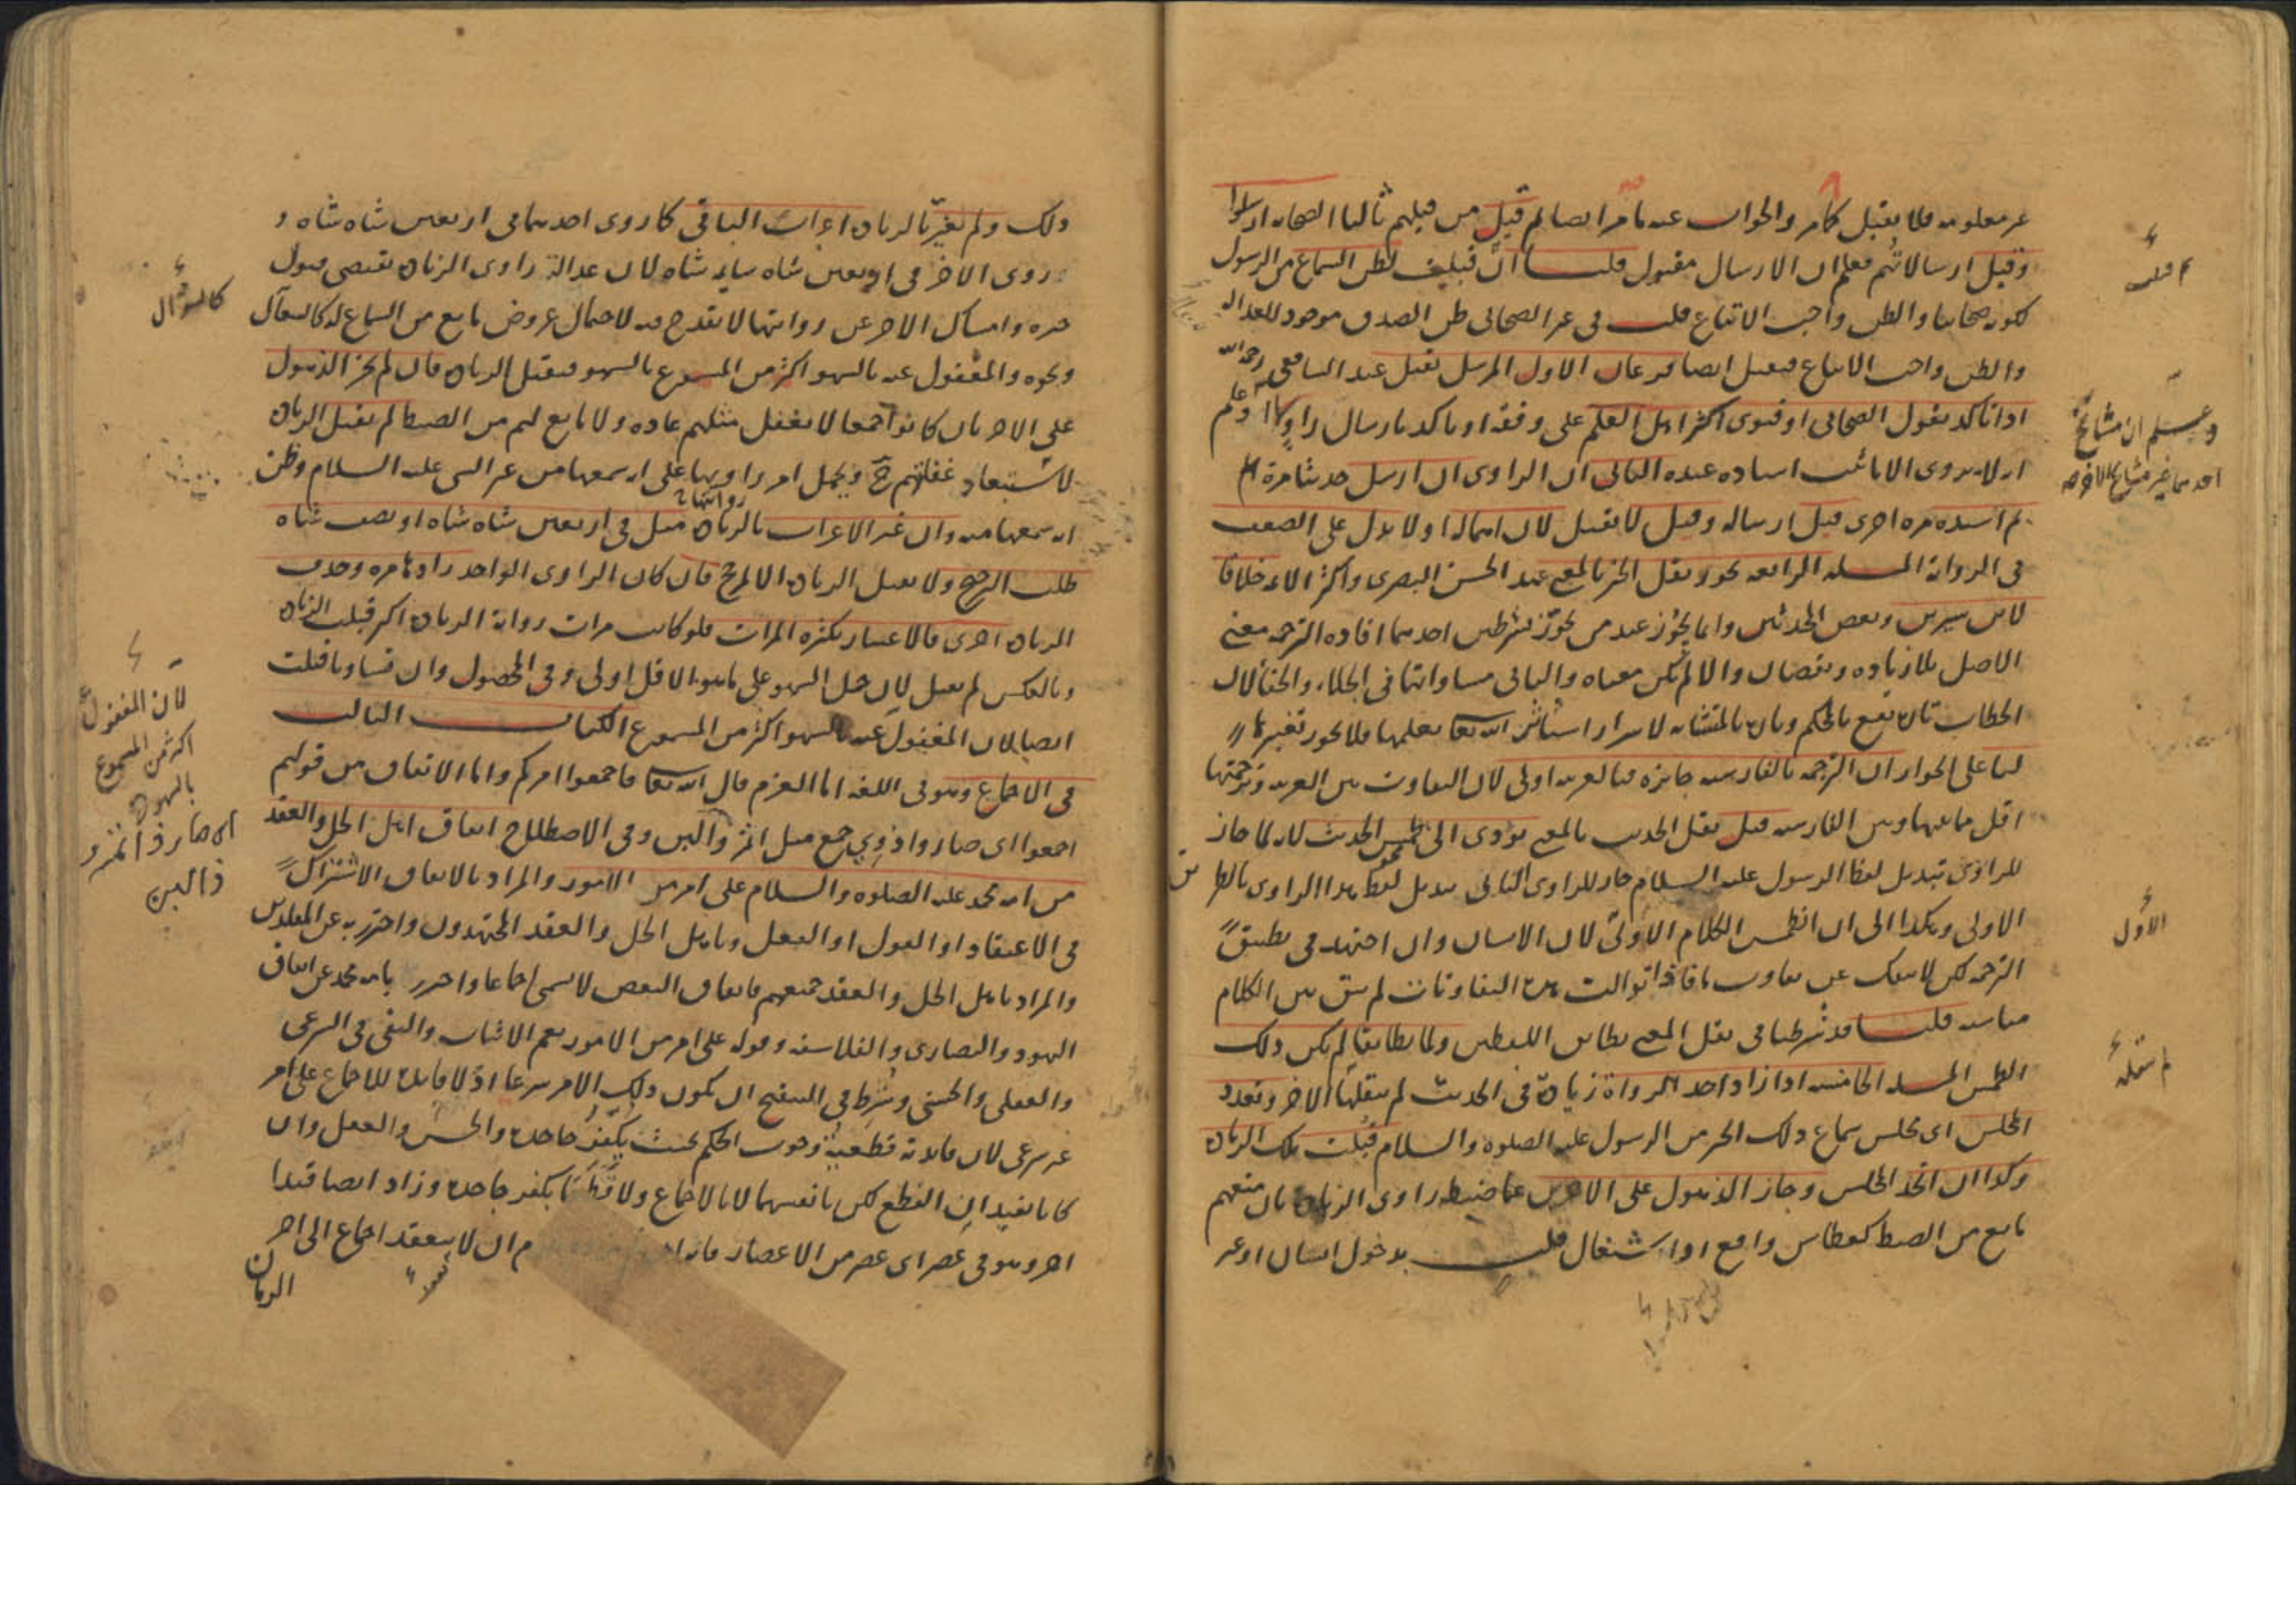 غير معلومه فلا يقبل كما مر والجواب عنه ما مر ايضا لم قيل من قبلهم ثالثا الصحابه ارسلوا
وقبل ارسالاتهم فعلم ان الارسال مقبول قلنا انما قبلت لظن السماع من الرسول
لكونه صحابيا والظن واجب الاتباع قلت في غير الصحابى ظن الصدق موجود للعداله
والظن واجب الاتباع فيقبل ايضا فرعان الاول المرسل يقبل عند الشافعى رحمه الله
اذا تاكد بقول الصحابى او فتوى اكثر اهل العلم على وفقه او تاكد بارسال راو آخر وعلم
انه لا يروى الا ما ثبت اسناده عنده الثانى ان الراوى ان ارسل حديثا مرة
ثم اسنده مره اخرى قبل ارساله وقيل لا يقبل لان اهماله اولا يدل على الضعف
فى الروايه المسئله الرابعه يجوز نقل الخبر بالمعنى عند الحسن البصرى واكثر الائمه خلافا
لابن سيرين وبعض المحدثين وانما يجوز عند من يجوز بشرطين احدهما افاده الترجمه معنى
الاصل بلا زياده ونقصان والا لم يكن معناه والثانى مساواتها فى الجلاء والخفأ لان
الخطاب تارة يقع بالمحكم وتارة بالمتشابه لاسرار استاثر الله تعا بعلمها فلا يجوز تغيرها
لنا على الجواز ان الترجمه بالفارسيه جايزه فبالعربيه اولى لان التفاوت بين العربيه وترجمتها
اقل مما بينها وبين الفارسيه قيل نقل الحديث بالمعنى يؤدى الى طمس الحديث لانه لما جاز
للراوى تبديل لفظ الرسول عليه السلام جاز للراوى الثانى تبديل لفظ هذا الراوى بالطريق
الاولى وهكذا الى ان انطمس الكلام الاول لان الانسان وان اجتهد فى تطبيق
الترجمه لكن لا ينفك عن تفاوت ما فاذا توالت هذه التفاوتات لم يبق بين الكلام
مناسبه قلنا قد شرطنا فى نقل المعنى تطابق اللفظين ولما تطابقا لم يكن ذلك
الطمس المسئله الخامسه اذا زاد احد الرواة زيادة فى الحديث لم ينقلها الاخر وتعدد
المجلس اى مجلس سماع ذلك الخبر من الرسول عليه الصلوه والسلام قبلت تلك الزيادة
وكذا ان اتحد المجلس وجاز الذهول على الاخرين عما ضبطه راوى الزيادة بان منعهم
مانع من الضبط كعطاس واقع او اشتغال قلب بدخول انسان او غير
قلت
وعلم ان مشائخ
احدهما غير مشائخ الاخر صح
الاول
لم ينقله
ذلك ولم يغير الزيادة اعراب الباقى كما روى احدهما فى اربعين شاه شاه و
روى الاخر فى اربعين شاه سايمه شاه لان عدالة راوى الزيادة تقتضى قبول
خبره وامساك الاخر عن روايتها لا يقدح فيه لاحتمال عروض مانع من السماع له كالسعال
ونحوه والمغفول عنه بالسهو اكثر من المسموع بالسهو فيقبل الزيادة فان لم يجز الذهول
على الاخر بان كانوا جمعا لا يغفل مثلهم عاده ولا مانع لهم من الضبط لم يقبل الزيادة
لاستبعاد غفلتهم ح ويحمل امر راويها على انه سمعها من غير النبى عليه السلام وظن
انه سمعها منه وان غير الاعراب بالزيادة مثل فى اربعين شاه شاه او نصف شاه
طلب الترجيح ولا يقبل الزيادة الا لمرجح فان كان الراوى الواحد زادها مره وحذف
الزيادة اخرى فالاعتبار بكثره المرات فلو كانت مرات رواية الزيادة اكثر قبلت الزيادة
وبالعكس لم يقبل لان حمل السهو على ما هو الاقل اولى وفى المحصول وان تساويا قبلت
ايضا لان المغفول عنه بالسهو اكثر من المسموع الكتاب الثالث
فى الاجماع وهو فى اللغه اما العزم قال الله تعا فاجمعوا امركم واما الاتفاق من قولهم
اجمعوا اى صاروا ذوى جمع مثل اثمر وألبن وفى الاصطلاح اتفاق اهل الحل والعقد
من امه محمد عليه الصلوه والسلام على امر من الامور والمراد بالاتفاق الاشتراك
فى الاعتقاد او القول او الفعل وباهل الحل والعقد المجتهدون واحترز به عن المقلدين
والمراد باهل الحل والعقد جميعهم فاتفاق البعض لا يسمى اجماعا واحترز بامه محمد عن اتفاق
اليهود والنصارى والفلاسفه وقوله على امر من الامور يعم الاثبات والنفى فى الشرعى
والعقلى والحسى وشرط فى التنقيح ان يكون ذلك الامر شرعيا اذ لا فايدة للاجماع على امر
غير شرعى لان فايدته قطعية وجوب الحكم بحيث يكفر جاحده والحس والعقل وان
كانا يفيدان القطع لكن بانفسهما لا بالاجماع ولا قطعا يكفر جاحده وزاد ايضا قيدا
اخر وهو فى عصر اى عصر من الاعصار فانه ان لا ينعقد اجماع الى اخر
الزمان
كالسؤال
لان المغفول
اكثر من المسموع
بالسهو
اى صار ذا ثمر و
ذا لبن